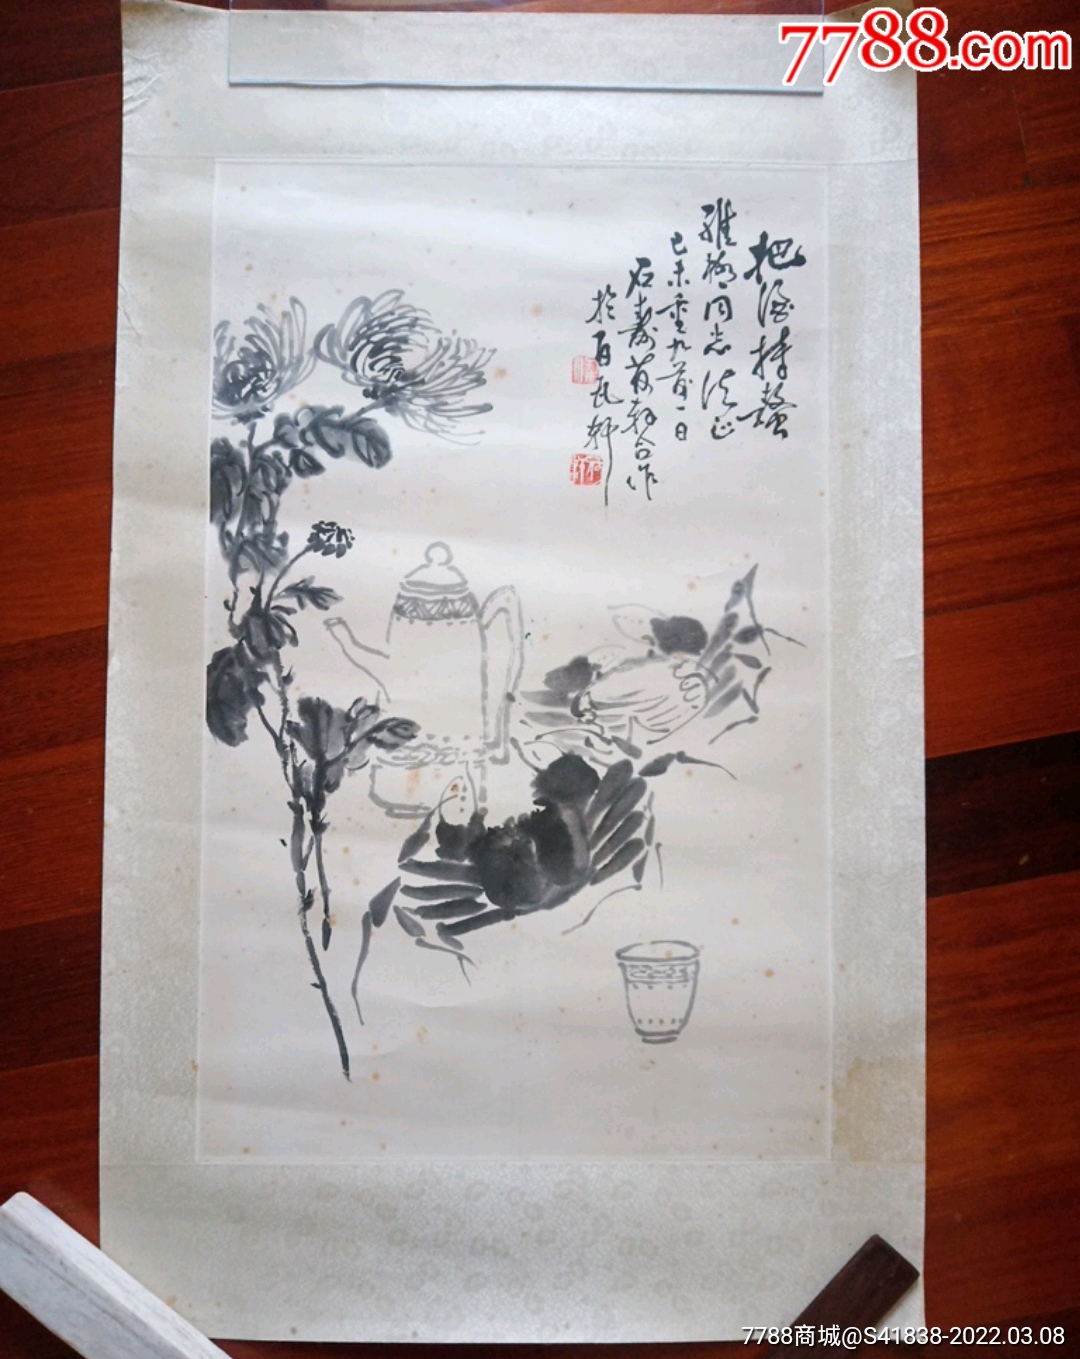 7788.com
把酒持螯
雅柳同志法正
己未重九前一日
石寿 合作
于百瓦轩
7788商城@S41838-2022.03.08